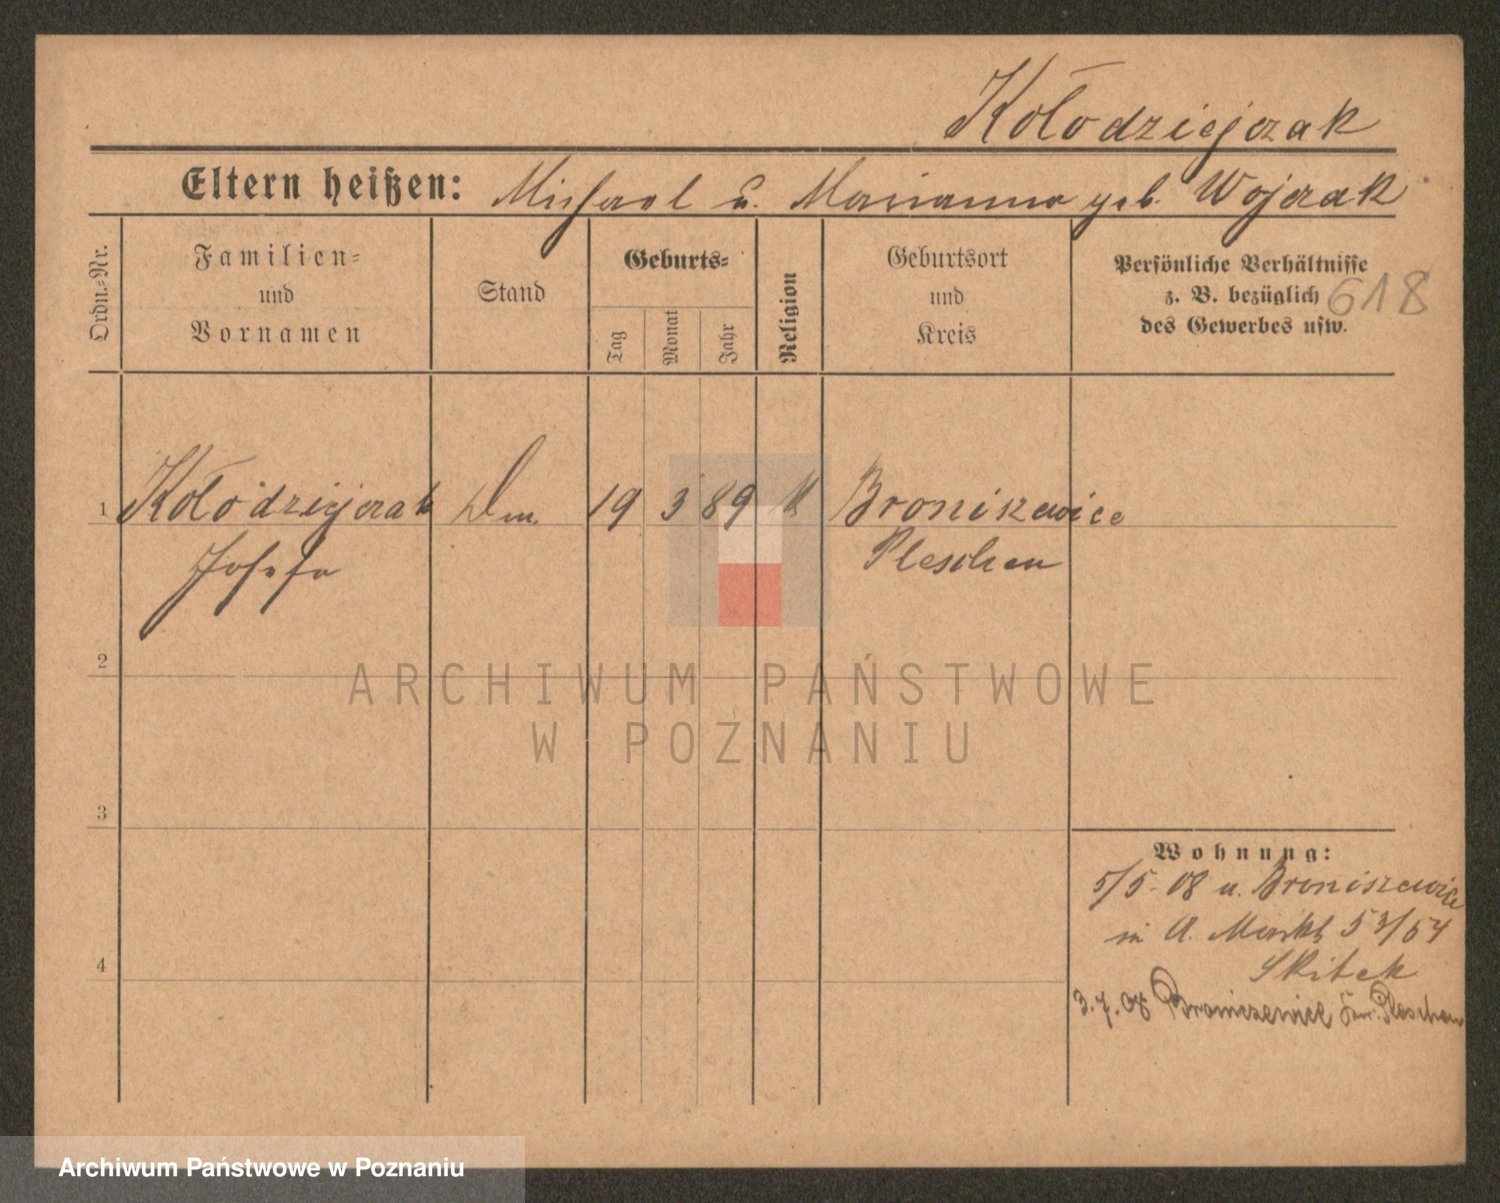 Kołodziejczak
Eltern heißen: Michael u. Marianna geb. Wojczak
Ordn.-Nr.
Familien-
und
Vornamen
Stand
Geburts-
Tag
Monat
Jahr
Religion
Geburtsort
und
Kreis
Persönliche Verhältnisse
z. B. bezüglich
des Gewerbes usw.
618
1 Kołodziejczak Dm. 19 3 89 K Broniszewice
Josefa Pleschen
2
3
4
Wohnung:
5/5. 08 u. Broniszewice
in A. Markt 53/54
Skitek
3.7.08 Broniszewice Pleschen
ARCHIWUM PAŃSTWOWE
W POZNANIU
Archiwum Państwowe w Poznaniu